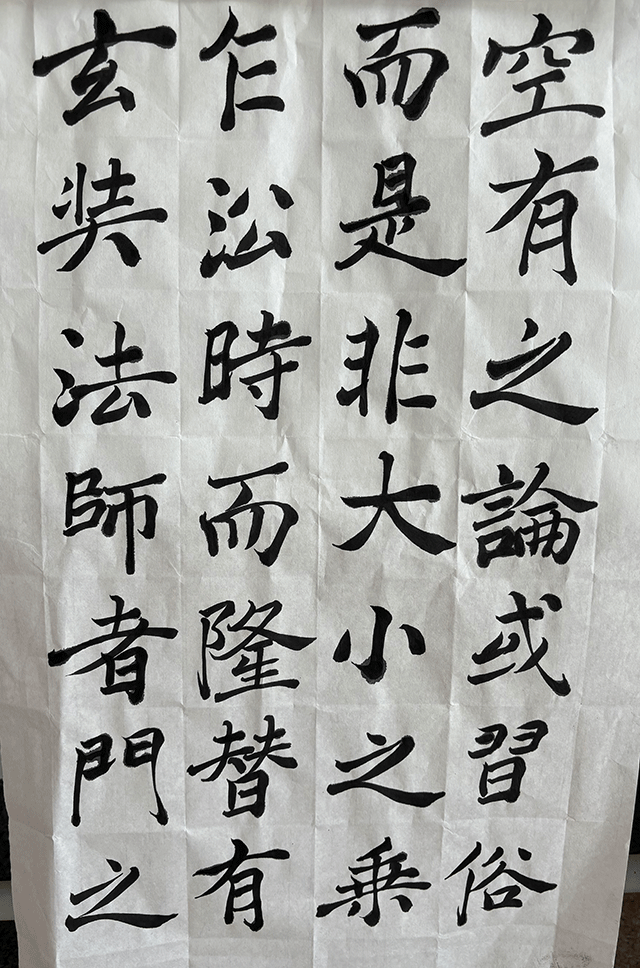 空有之論或習俗
而是非大小之乗
乍沿時而隆替有
玄奘法師者門之